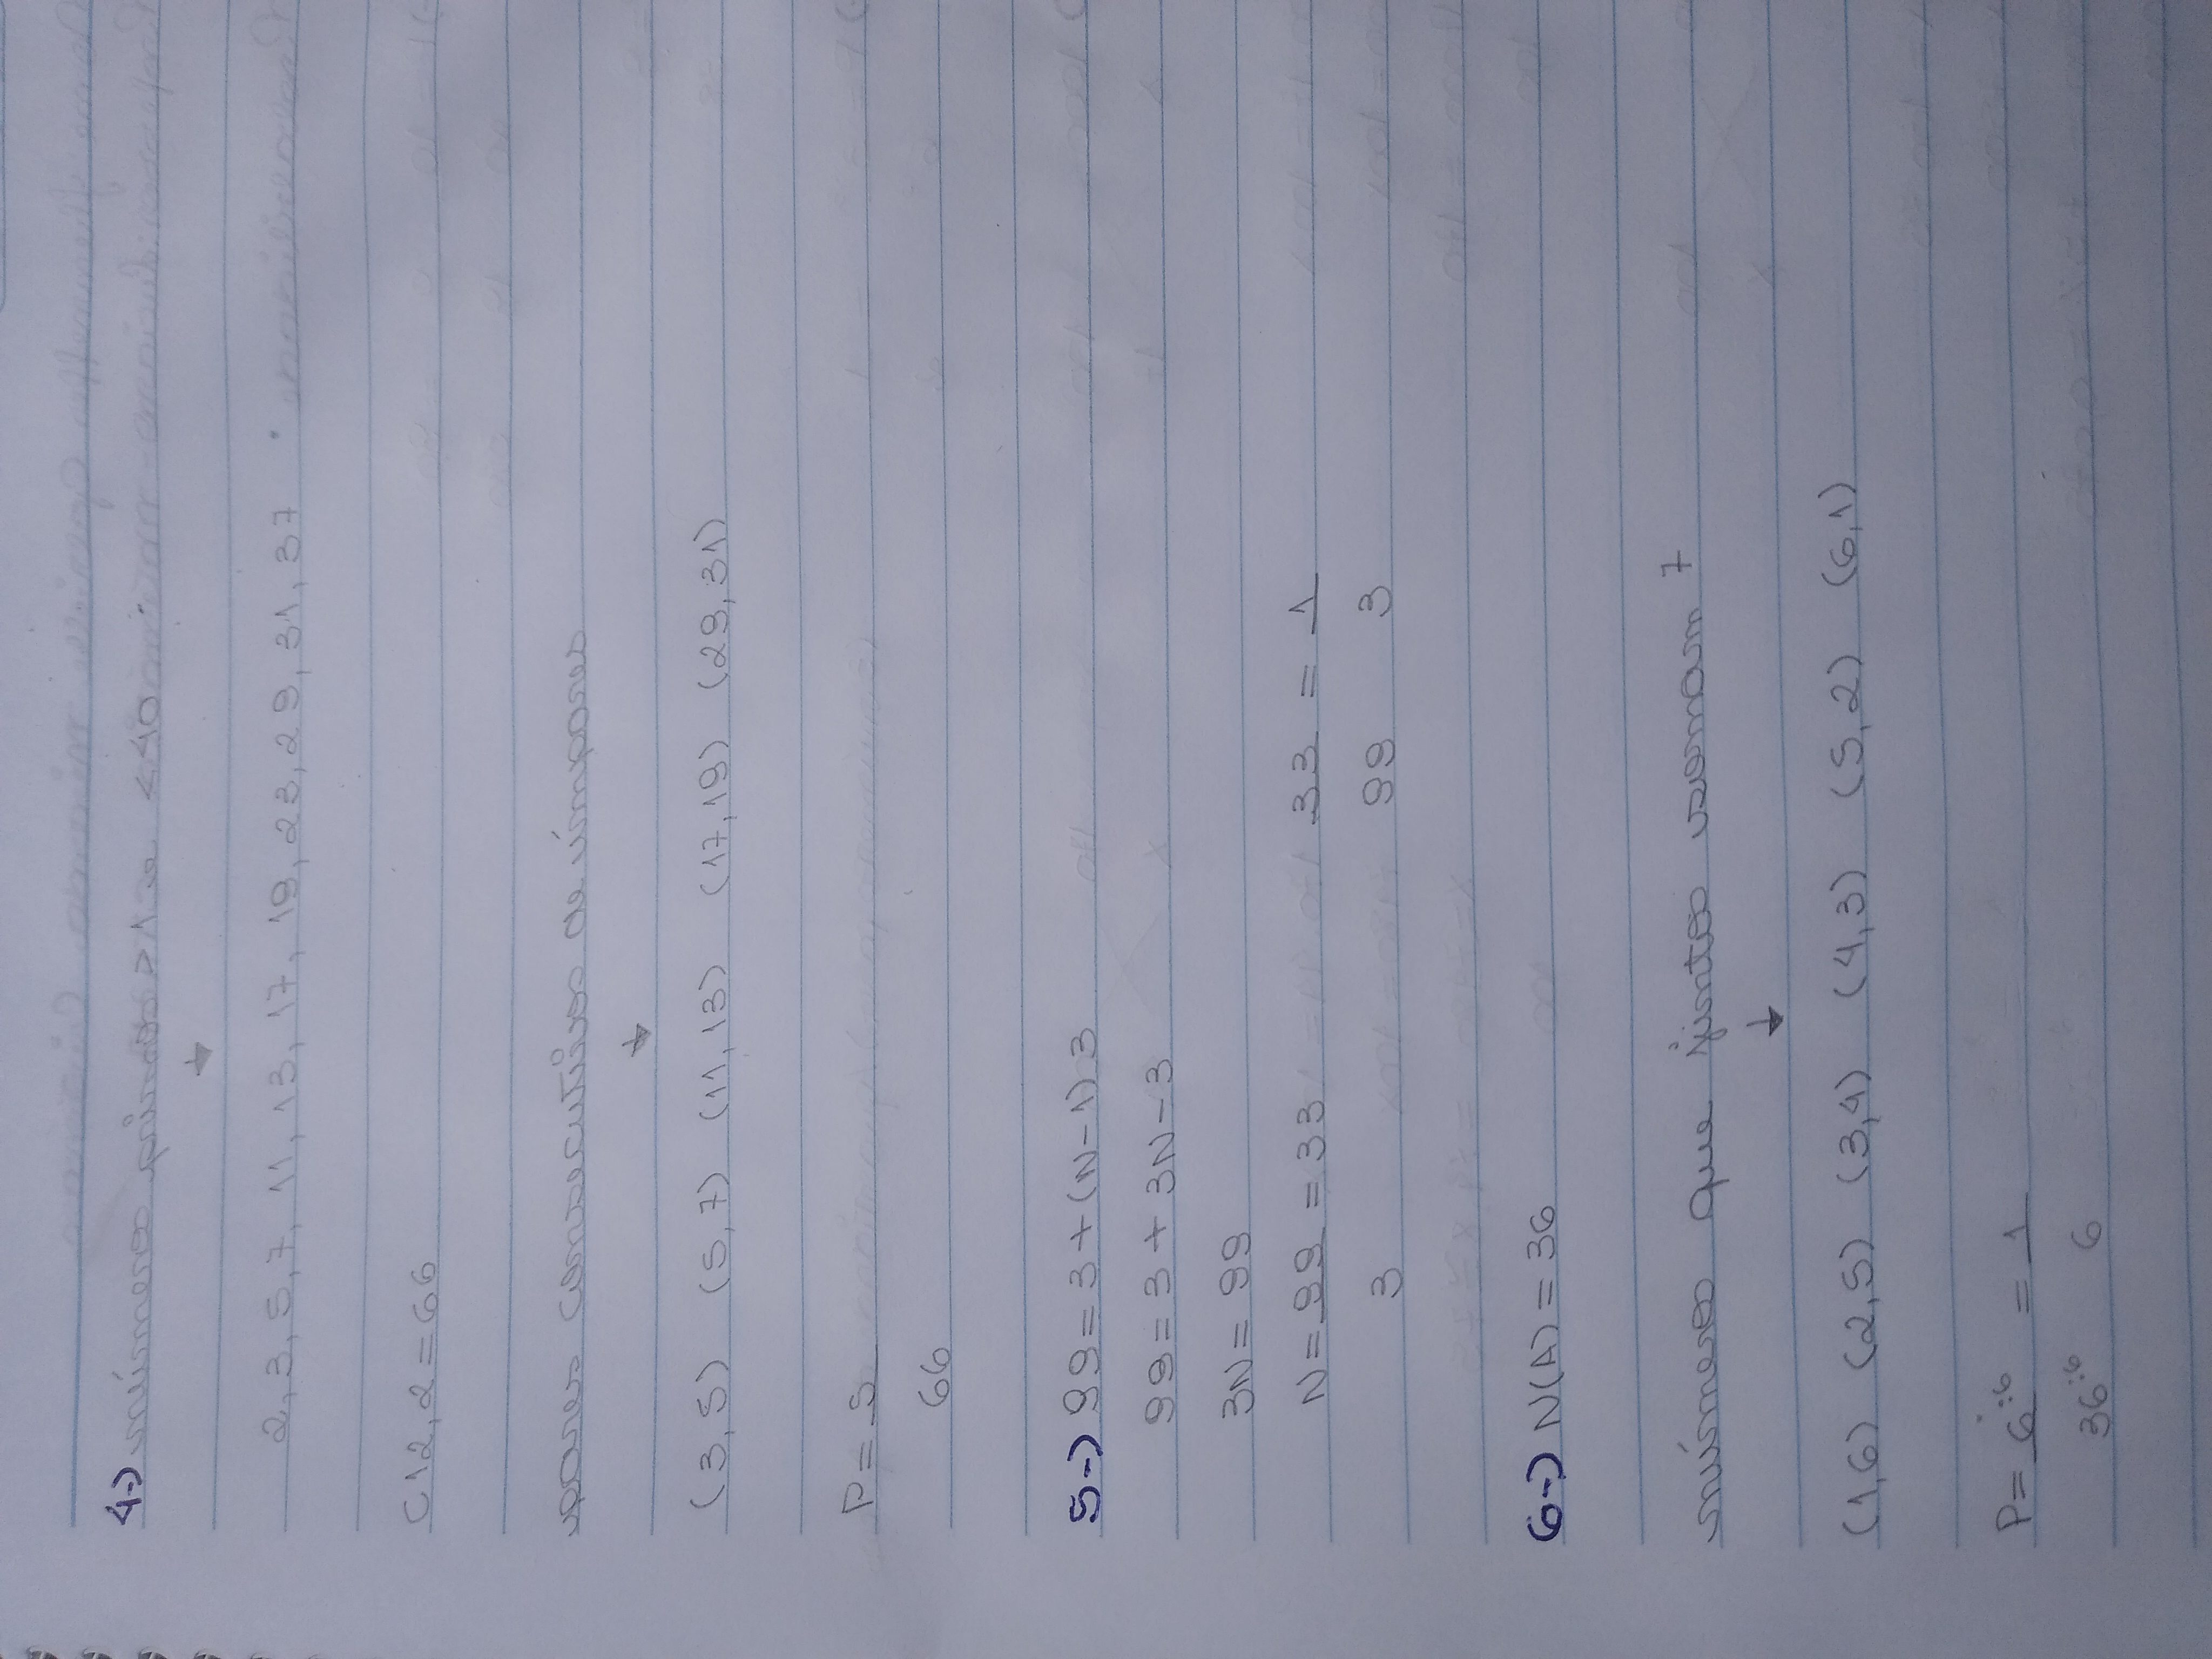 4-) números primos > 1 e < 40 :
2, 3, 5, 7, 11, 13, 17, 19, 23, 29, 31, 37
C12,2 = 66
pares consecutivos de ímpares
(3,5) (5,7) (11,13) (17,19) (29,31)
P = 5
66
5-) 99 = 3 + (N-1) 3
99 = 3 + 3N - 3
3N = 99
N = 99 = 33 33 = 1
3 99 3
6-) N(A) = 36
números que juntos somam 7
(1,6) (2,5) (3,4) (4,3) (5,2) (6,1)
P = 6:6 = 1
36:6 6